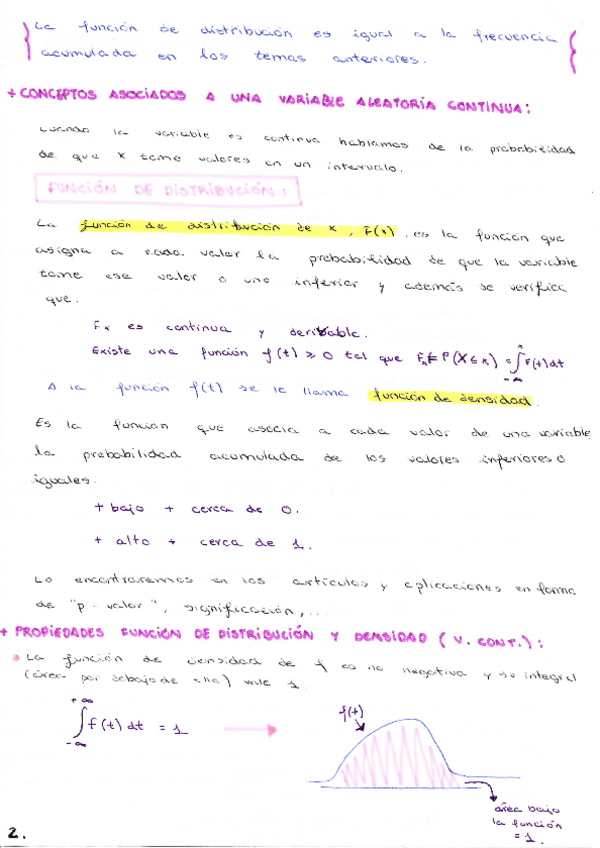 La función de distribución es igual a la frecuencia
acumulada en los temas anteriores.
+ CONCEPTOS ASOCIADOS A UNA VARIABLE ALEATORIA CONTINUA:
Cuando la variable es continua hablamos de la probabilidad
de que x tome valores en un intervalo.
FUNCIÓN DE DISTRIBUCIÓN:
La función de distribución de x, F(x), es la función que
asigna a cada valor la probabilidad de que la variable
tome ese valor o uno inferior y además se verifica
que.
Fx es continua y derivable.
Existe una función f(t) ≥ 0 tal que Fx P(X ≤ x) = ∫ f(t) dt
x
-∞
A la función f(t) se le llama función de densidad.
Es la función que asocia a cada valor de una variable
la probabilidad acumulada de los valores inferiores o
iguales.
+ bajo + cerca de 0.
+ alto + cerca de 1.
Lo encontraremos en los artículos y aplicaciones en forma
de "p-valor", significación,...
+ PROPIEDADES FUNCIÓN DE DISTRIBUCIÓN Y DENSIDAD (V. CONT.):
La función de densidad de f es no negativa y su integral
(área por debajo de ella) vale 1.
+∞
∫ f(t) dt = 1
-∞
f(t)
área bajo
la función
= 1.
2.